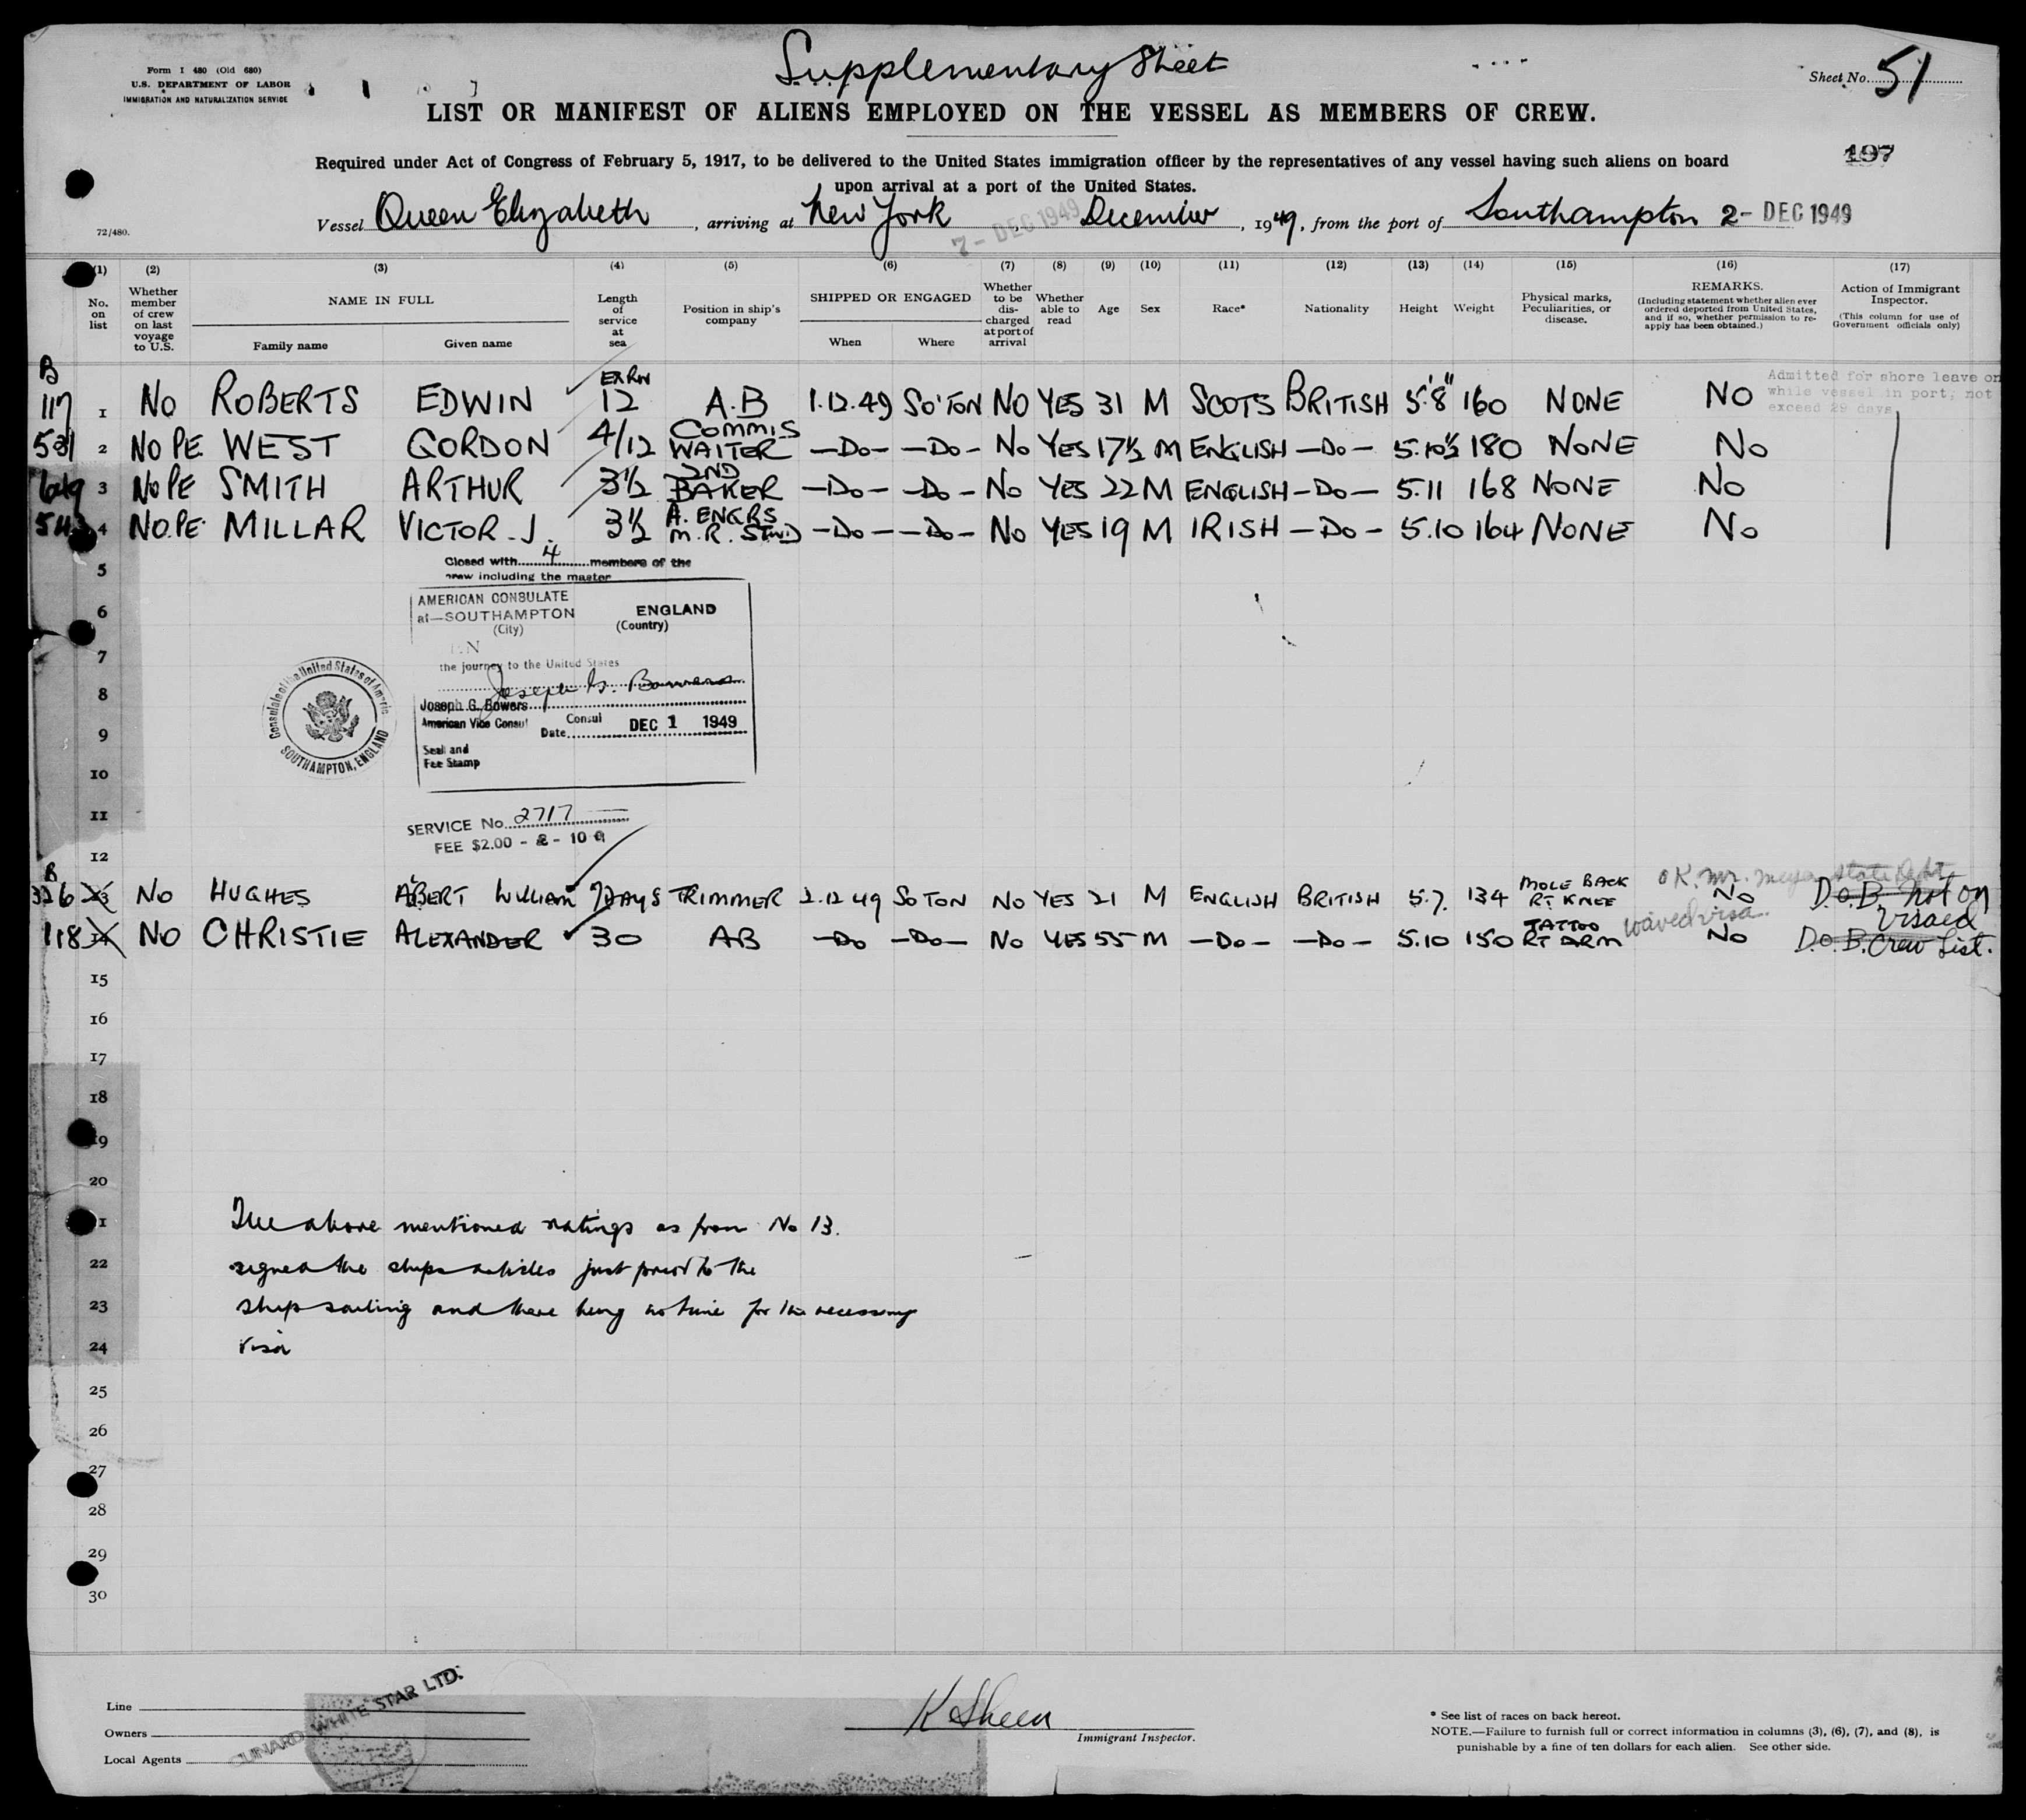 Supplementary Sheet
Form I 480 (Old 680)
U.S. DEPARTMENT OF LABOR
IMMIGRATION AND NATURALIZATION SERVICE
Sheet No. 51
LIST OR MANIFEST OF ALIENS EMPLOYED ON THE VESSEL AS MEMBERS OF CREW.
Required under Act of Congress of February 5, 1917, to be delivered to the United States immigration officer by the representatives of any vessel having such aliens on board
upon arrival at a port of the United States.
197
72/480.
Vessel Queen Elizabeth, arriving at New York 7 - DEC 1949 December, 1949, from the port of Southampton 2 - DEC 1949
(1) (2) (3) (4) (5) (6) (7) (8) (9) (10) (11) (12) (13) (14) (15) (16) (17)
No. on list
Whether member of crew on last voyage to U.S.
NAME IN FULL
Family name Given name
Length of service at sea
Position in ship's company
SHIPPED OR ENGAGED
When Where
Whether to be discharged at port of arrival
Whether able to read
Age
Sex
Race*
Nationality
Height
Weight
Physical marks, Peculiarities, or disease.
REMARKS.
(Including statement whether alien ever ordered deported from United States, and if so, whether permission to reapply has been obtained.)
Action of Immigrant Inspector.
(This column for use of Government officials only)
B
117 1 NO ROBERTS EDWIN 12 A.B 1.12.49 SO'TON NO YES 31 M SCOTS BRITISH 5'8" 160 NONE NO
Admitted for shore leave on
while vessel in port, not
exceed 29 days
531 2 NO PE WEST GORDON 4/12 COMMIS WAITER —DO— —DO— NO YES 17½ M ENGLISH —DO— 5.10½ 180 NONE NO
649 3 NO PE SMITH ARTHUR 3½ 2ND BAKER —DO— —DO— NO YES 22 M ENGLISH —DO— 5.11 168 NONE NO
4 NO.PE. MILLAR VICTOR. J. 3½ A. ENGRS M.R. STWD —DO— —DO— NO YES 19 M IRISH —DO— 5.10 164 NONE NO
Closed with 4 members of the
crew including the master
5
AMERICAN CONSULATE
at—SOUTHAMPTON ENGLAND
(City) (Country)
6
7
the journey to the United States
8
Joseph G. Bowers
American Vice Consul Consul
Date DEC 1 1949
9
Seal and
Fee Stamp
Consulate of the United States of America
SOUTHAMPTON, ENGLAND
10
11
SERVICE No. 2717
FEE $2.00 -
12
B
326 13 NO HUGHES ALBERT WILLIAM 7 DAYS TRIMMER 2.12.49 SO TON NO YES 21 M ENGLISH BRITISH 5.7. 134 MOLE BACK RT KNEE NO
OK. Mr. Meyer State Dept
waived visa.
D.O.B. Not on
visaed
118 14 NO CHRISTIE ALEXANDER 30 AB —DO —DO— NO YES 55 M —DO— —DO— 5.10 150 TATTOO RT ARM NO D.O.B. Crew List.
15
16
17
18
19
20
The above mentioned ratings as from No 13.
22
signed the ships articles just prior to the
23
ship sailing and there being no time for the necessary
24
visa
25
26
27
28
29
30
Line
Owners
Local Agents
CUNARD WHITE STAR LTD.
K Sheen
Immigrant Inspector.
* See list of races on back hereof.
NOTE.—Failure to furnish full or correct information in columns (3), (6), (7), and (8), is
punishable by a fine of ten dollars for each alien. See other side.